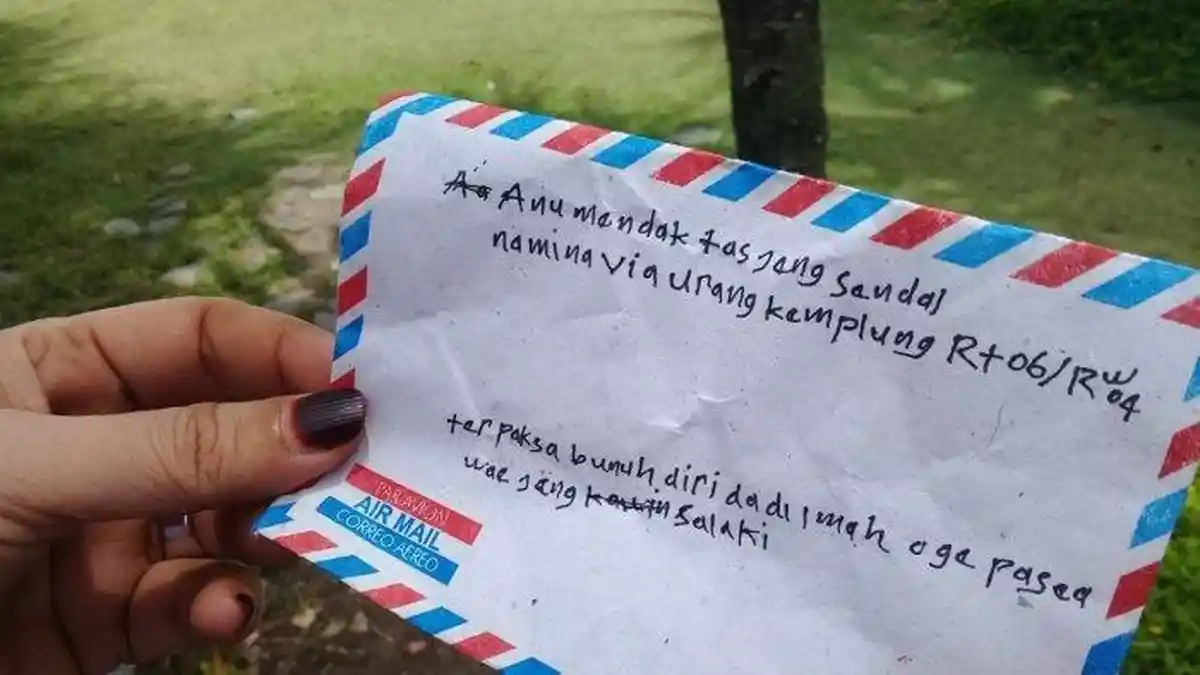 Aa Anu mendak tas jeng sendal
namina via urang kemplung Rt 06/Rw 04
ter paksa bunuh diri da di imah oge pasea
wae jeng kawin salaki
PAR AVION
AIR MAIL
CORREO AEREO